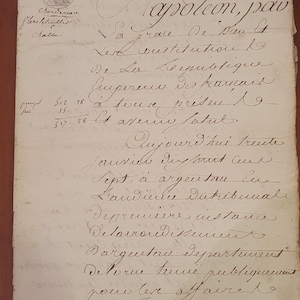 Napoléon, par
La Grace de Dieu et
Les Constitutions
De La République
Empereur des français
à tous présents
Et avenir Salut.
Aujourd'hui trente
janvier dix huit cent
Sept à argentan En
L'audience Du tribunal
De premiere instance
De l'arrondissement
D'argentan departement
De l'orne tenue publiquement
pour les affaires